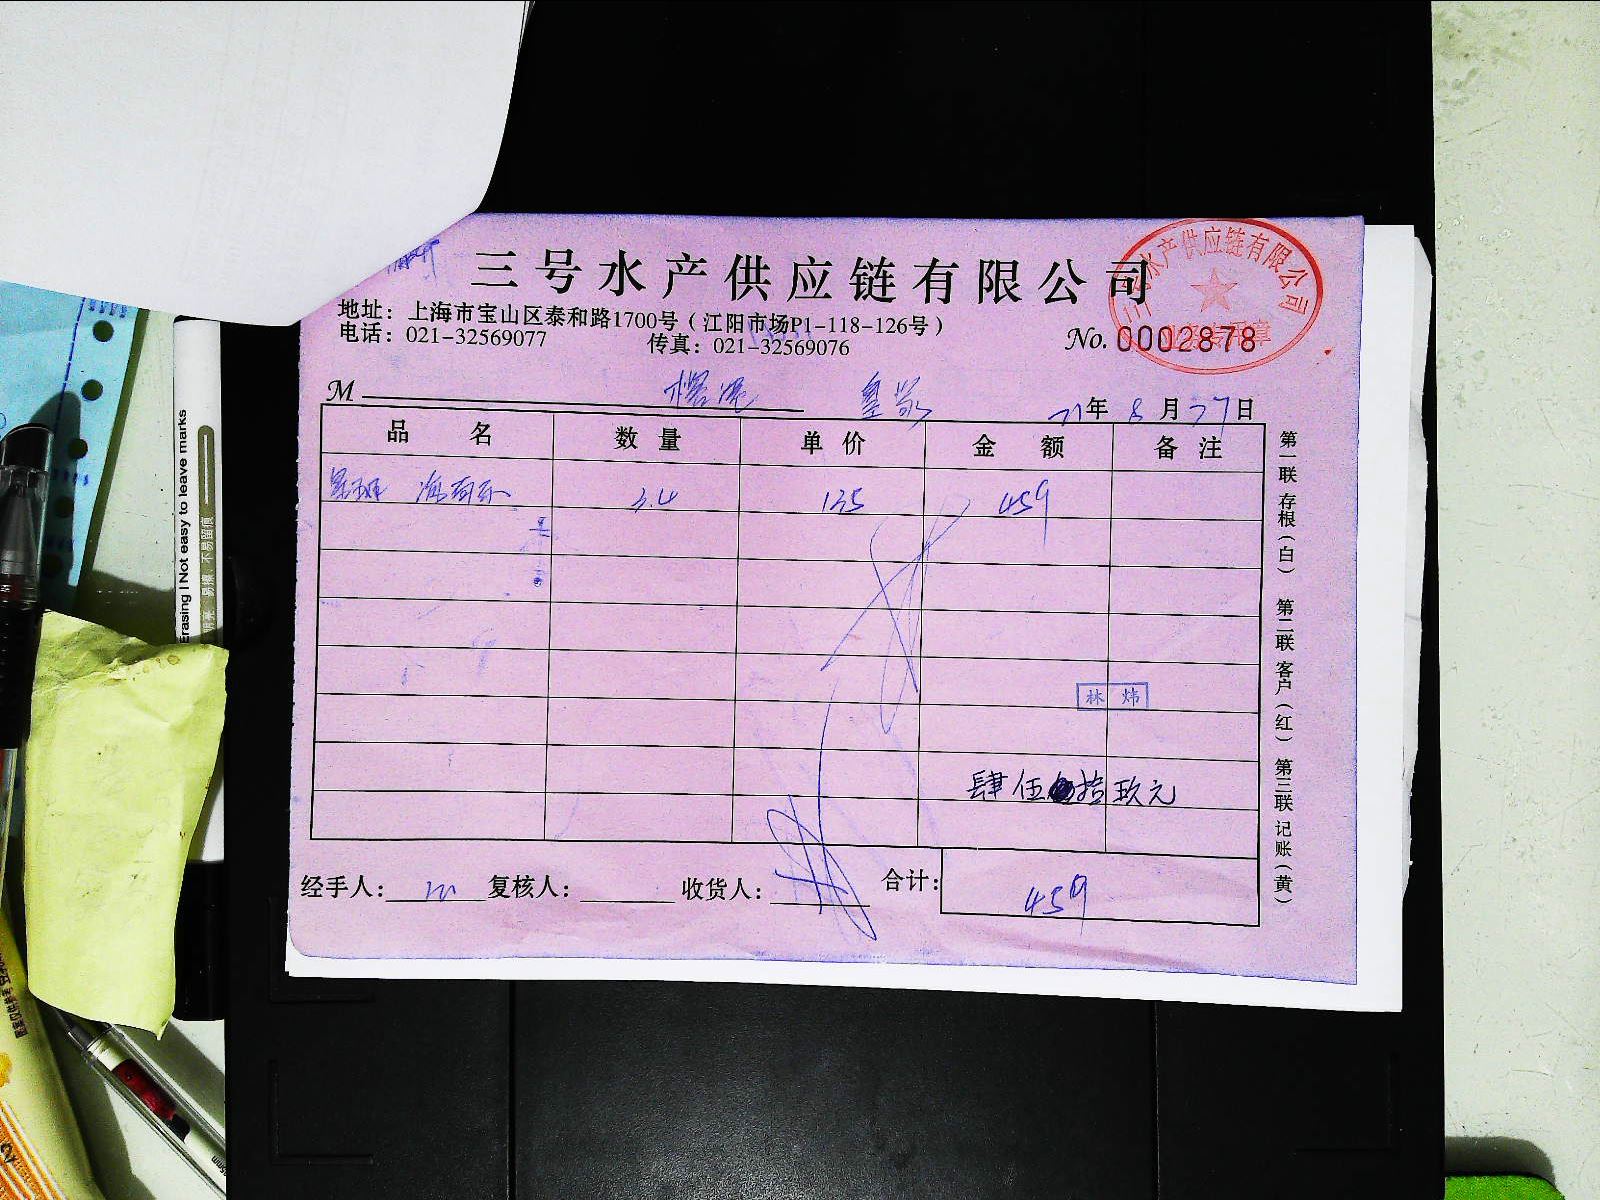 三号水产供应链有限公司
三号水产供应链有限公司
地址：上海市宝山区泰和路1700号（江阳市场P1-118-126号）
电话：021-32569077 传真：021-32569076
No. 0002878
M
21年 8月27日
品 名 数 量 单 价 金 额 备 注
3.4 135 459
林 炜
肆伍拾玖元
经手人： 复核人： 收货人： 合计： 459
第一联 存根（白） 第二联 客户（红） 第三联 记账（黄）
Erasing | Not easy to leave marks
易擦 不易留痕